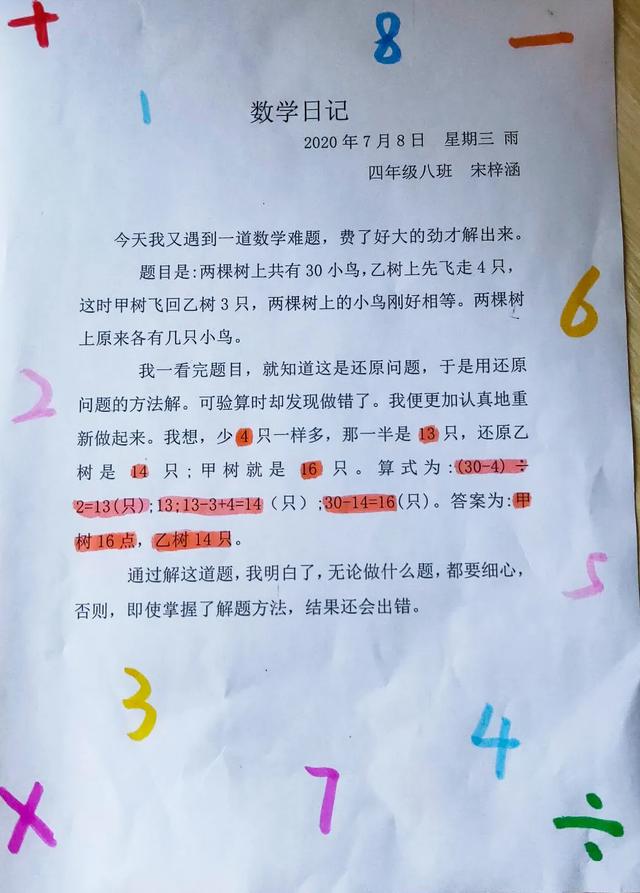 + 8 −
1
数学日记
2020年7月8日 星期三 雨
四年级八班 宋梓涵
今天我又遇到一道数学难题，费了好大的劲才解出来。
题目是:两棵树上共有30小鸟,乙树上先飞走4只，
这时甲树飞回乙树3只，两棵树上的小鸟刚好相等。两棵树
上原来各有几只小鸟。
6
我一看完题目，就知道这是还原问题，于是用还原
2
问题的方法解。可验算时却发现做错了。我便更加认真地重
新做起来。我想，少4只一样多，那一半是13只，还原乙
树是14只;甲树就是16只。算式为:(30-4)÷
2=13(只);13;13-3+4=14（只）;30-14=16(只)。答案为:甲
树16点，乙树14只。
通过解这道题,我明白了,无论做什么题,都要细心，
5
否则，即使掌握了解题方法，结果还会出错。
3
4
7
× ÷